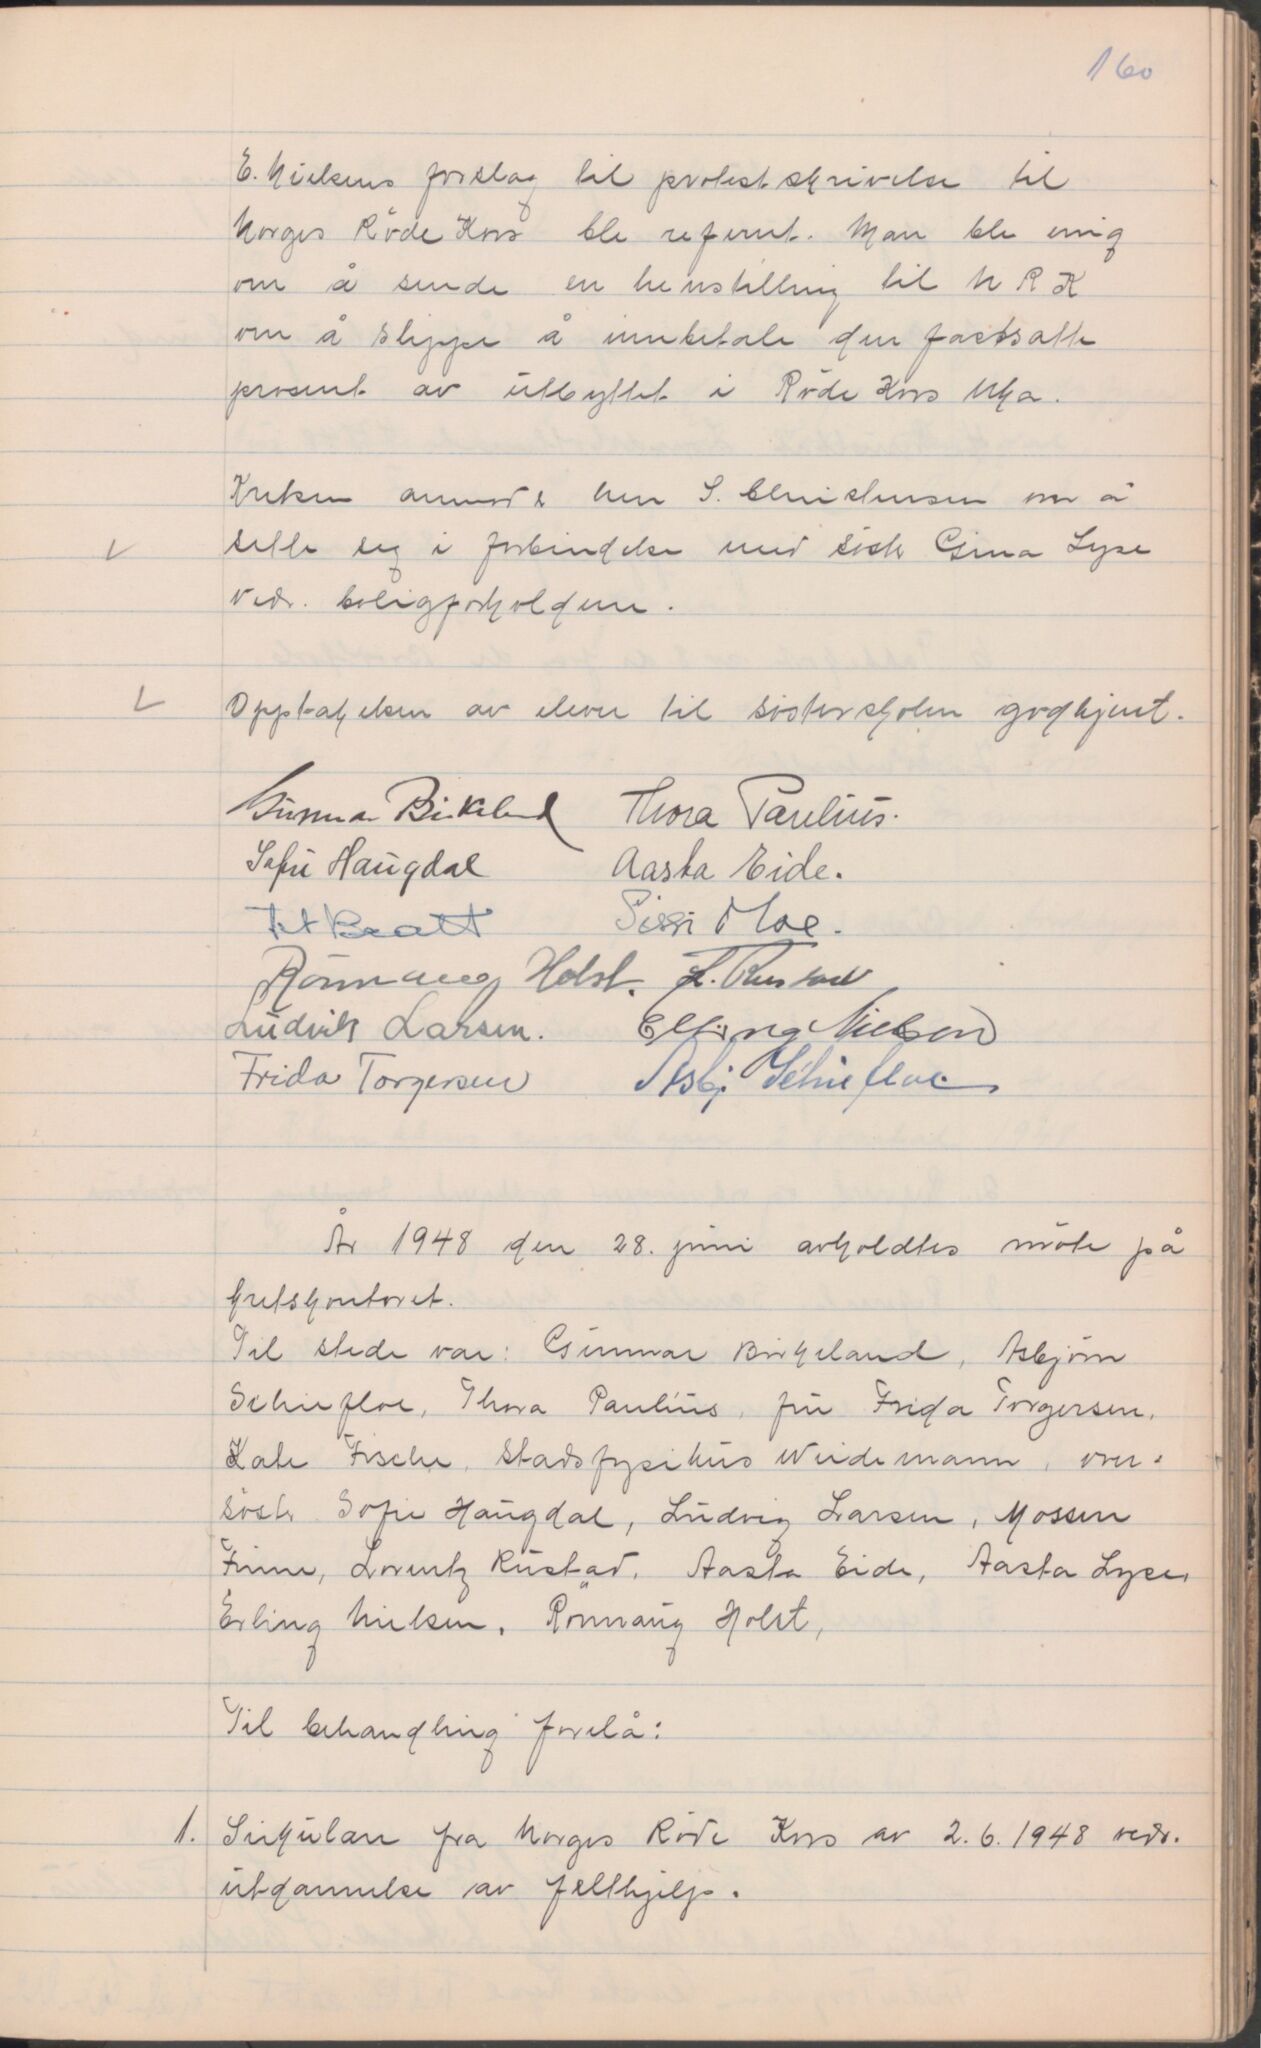 160
E. Nielsens forslag til protestskrivelse til
Norges Röde Kors ble referert. Man ble enig
om å sende en henstilling til N R K
om å slippe å innbetale den fastsatte
prosent av utbyttet i Röde Kors Uka.
Kretsen anmodet herr S. Christensen om å
sette seg i forbindelse med söster Gina Lyse
vedr. boligforholdene.
Opptakelsen av elever til sösterskolen godkjent.
Gunnar Birkeland Thora Paulius.
Sofie Haugdal Aasta Eide.
Bratt Sissi Moe.
Rönnaug Holst. L. Rustad
Ludvik Larsen. Erling Nielsen
Frida Torgersen Asbj. Schiefloe
År 1948 den 28. juni avholdtes möte på
kretskontoret.
Til stede var: Gunnar Birkeland, Asbjörn
Schiefloe, Thora Paulius, fru Frida Torgersen,
Kate Fischer, stadsfysikus Weidemann, over-
söster Sofie Haugdal, Ludvig Larsen, Mossen
Finne, Lorentz Rustad, Aasta Eide, Aasta Lyse,
Erling Nielsen, Rönnaug Holst,
Til behandling forelå:
1. Sirkulære fra Norges Röde Kors av 2.6.1948 vedr.
utdannelse av felthjelp.